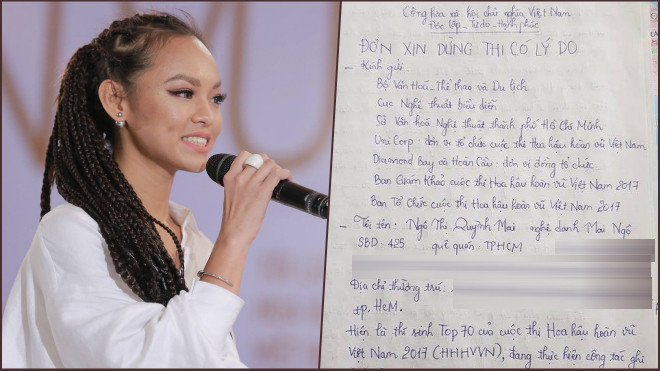 Cộng hòa xã hội chủ nghĩa Việt Nam
Độc lập - Tự do - Hạnh phúc
ĐƠN XIN DỪNG THI CÓ LÝ DO
- Kính gửi
Bộ Văn Hoá - Thể thao và Du lịch
Cục Nghệ thuật biểu diễn
Sở Văn hoá Nghệ thuật thành phố Hồ Chí Minh
Uni Corp: đơn vị tổ chức cuộc thi Hoa hậu hoàn vũ Việt Nam
Diamond Bay và Hoàn Cầu: đơn vị đồng tổ chức
Ban Giám Khảo cuộc thi Hoa hậu hoàn vũ Việt Nam 2017
Ban Tổ Chức cuộc thi Hoa hậu hoàn vũ Việt Nam 2017
- Tôi tên: Ngô Thị Quỳnh Mai nghệ danh Mai Ngô
SBD: 425 quê quán: TPHCM
Địa chỉ thường trú:
tp. HCM.
Hiện là thí sinh Top 70 của cuộc thi Hoa hậu hoàn vũ
Việt Nam 2017 (HHHVVN), đang thực hiện công tác ghi